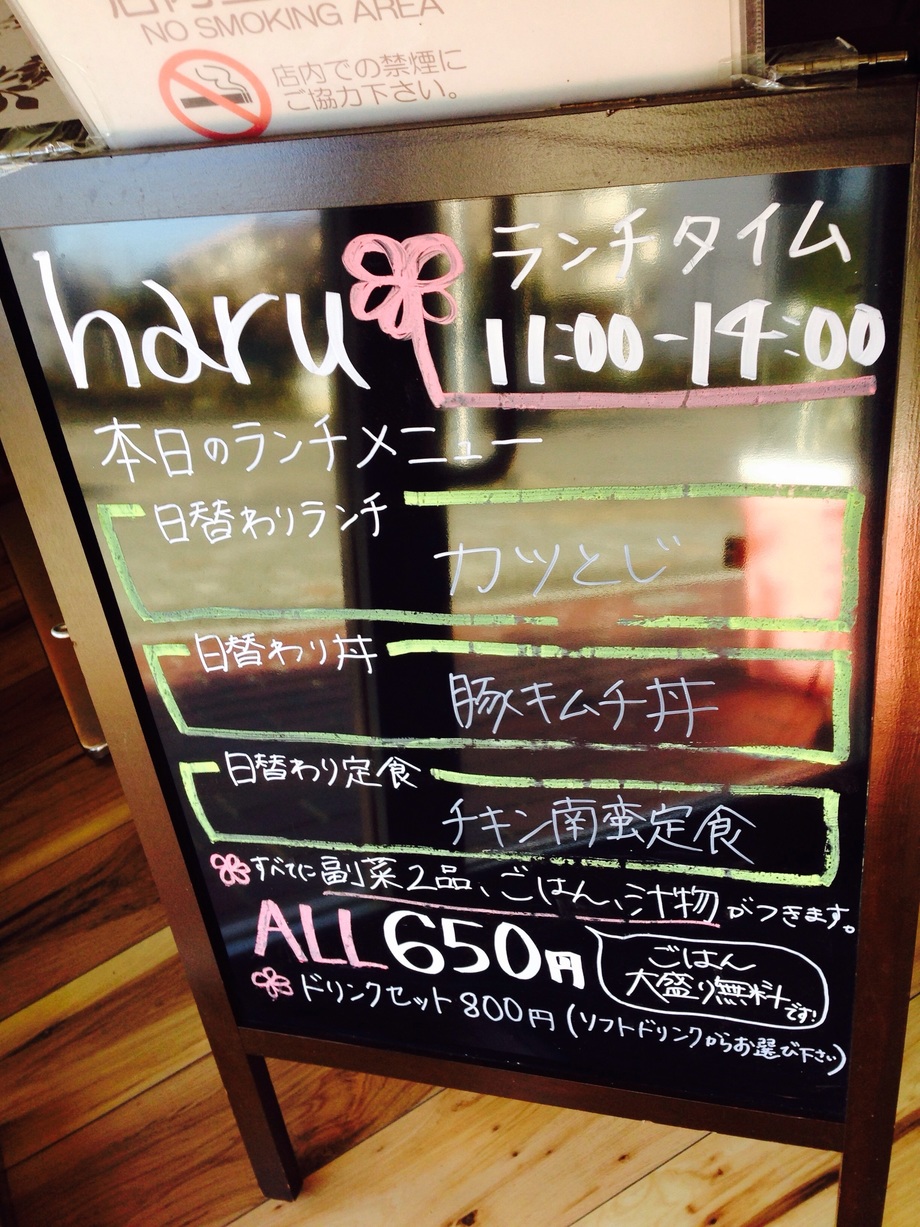 NO SMOKING AREA
店内での禁煙に
ご協力下さい。
haru
ランチタイム
11:00-14:00
本日のランチメニュー
日替わりランチ
カツとじ
日替わり丼
豚キムチ丼
日替わり定食
チキン南蛮定食
すべてに副菜2品、ごはん、汁物がつきます。
ALL650円
ごはん
大盛り無料です!
ドリンクセット800円(ソフトドリンクからお選び下さい)